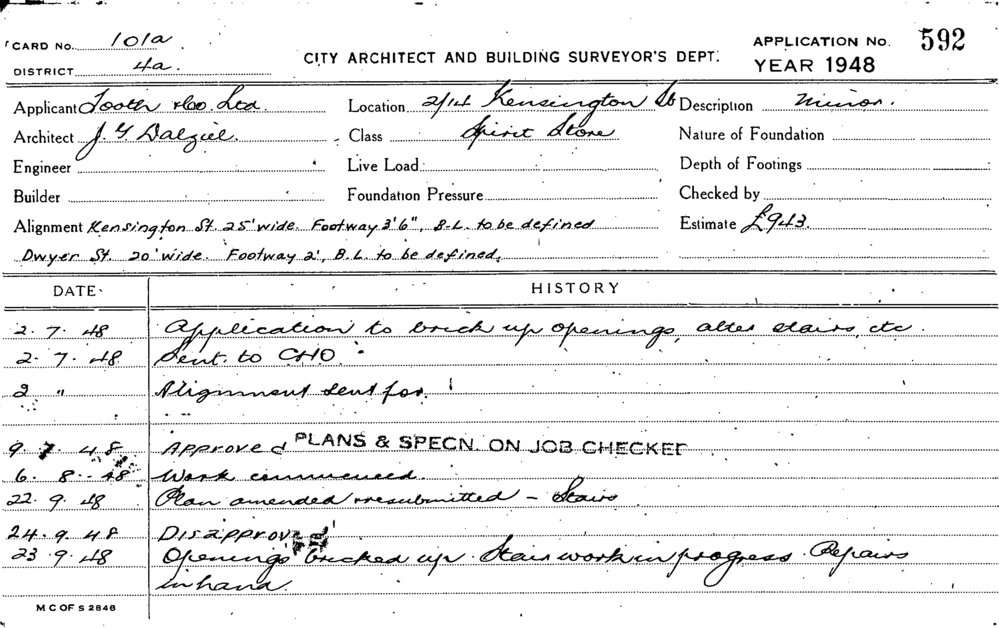 CARD No. 101a
DISTRICT 4a.
CITY ARCHITECT AND BUILDING SURVEYOR'S DEPT.
APPLICATION No. 592
YEAR 1948
Applicant Tooth & Co. Ltd. Location 2/14 Kensington St Description Minor.
Architect J. Y. Dalziel. Class Spirit Store Nature of Foundation
Engineer Live Load Depth of Footings
Builder Foundation Pressure Checked by
Alignment Kensington St. 25' wide. Footway 3'6", B.L. to be defined Estimate £943.
Dwyer St. 20' wide. Footway 2', B.L. to be defined.
DATE HISTORY
2. 7. 48 Application to brick up openings, alter stairs, etc.
2. 7. 48 Sent to CHO.
2 " Alignment sent for.
9. 7. 48 Approved PLANS & SPECN. ON JOB CHECKED
6. 8. 48 Work commenced.
22. 9. 48 Plan amended & resubmitted - Stairs
24. 9. 48 Disapproved
23. 9. 48 Openings bricked up. Stair work in progress. Repairs
in hand.
M C OF S 2848